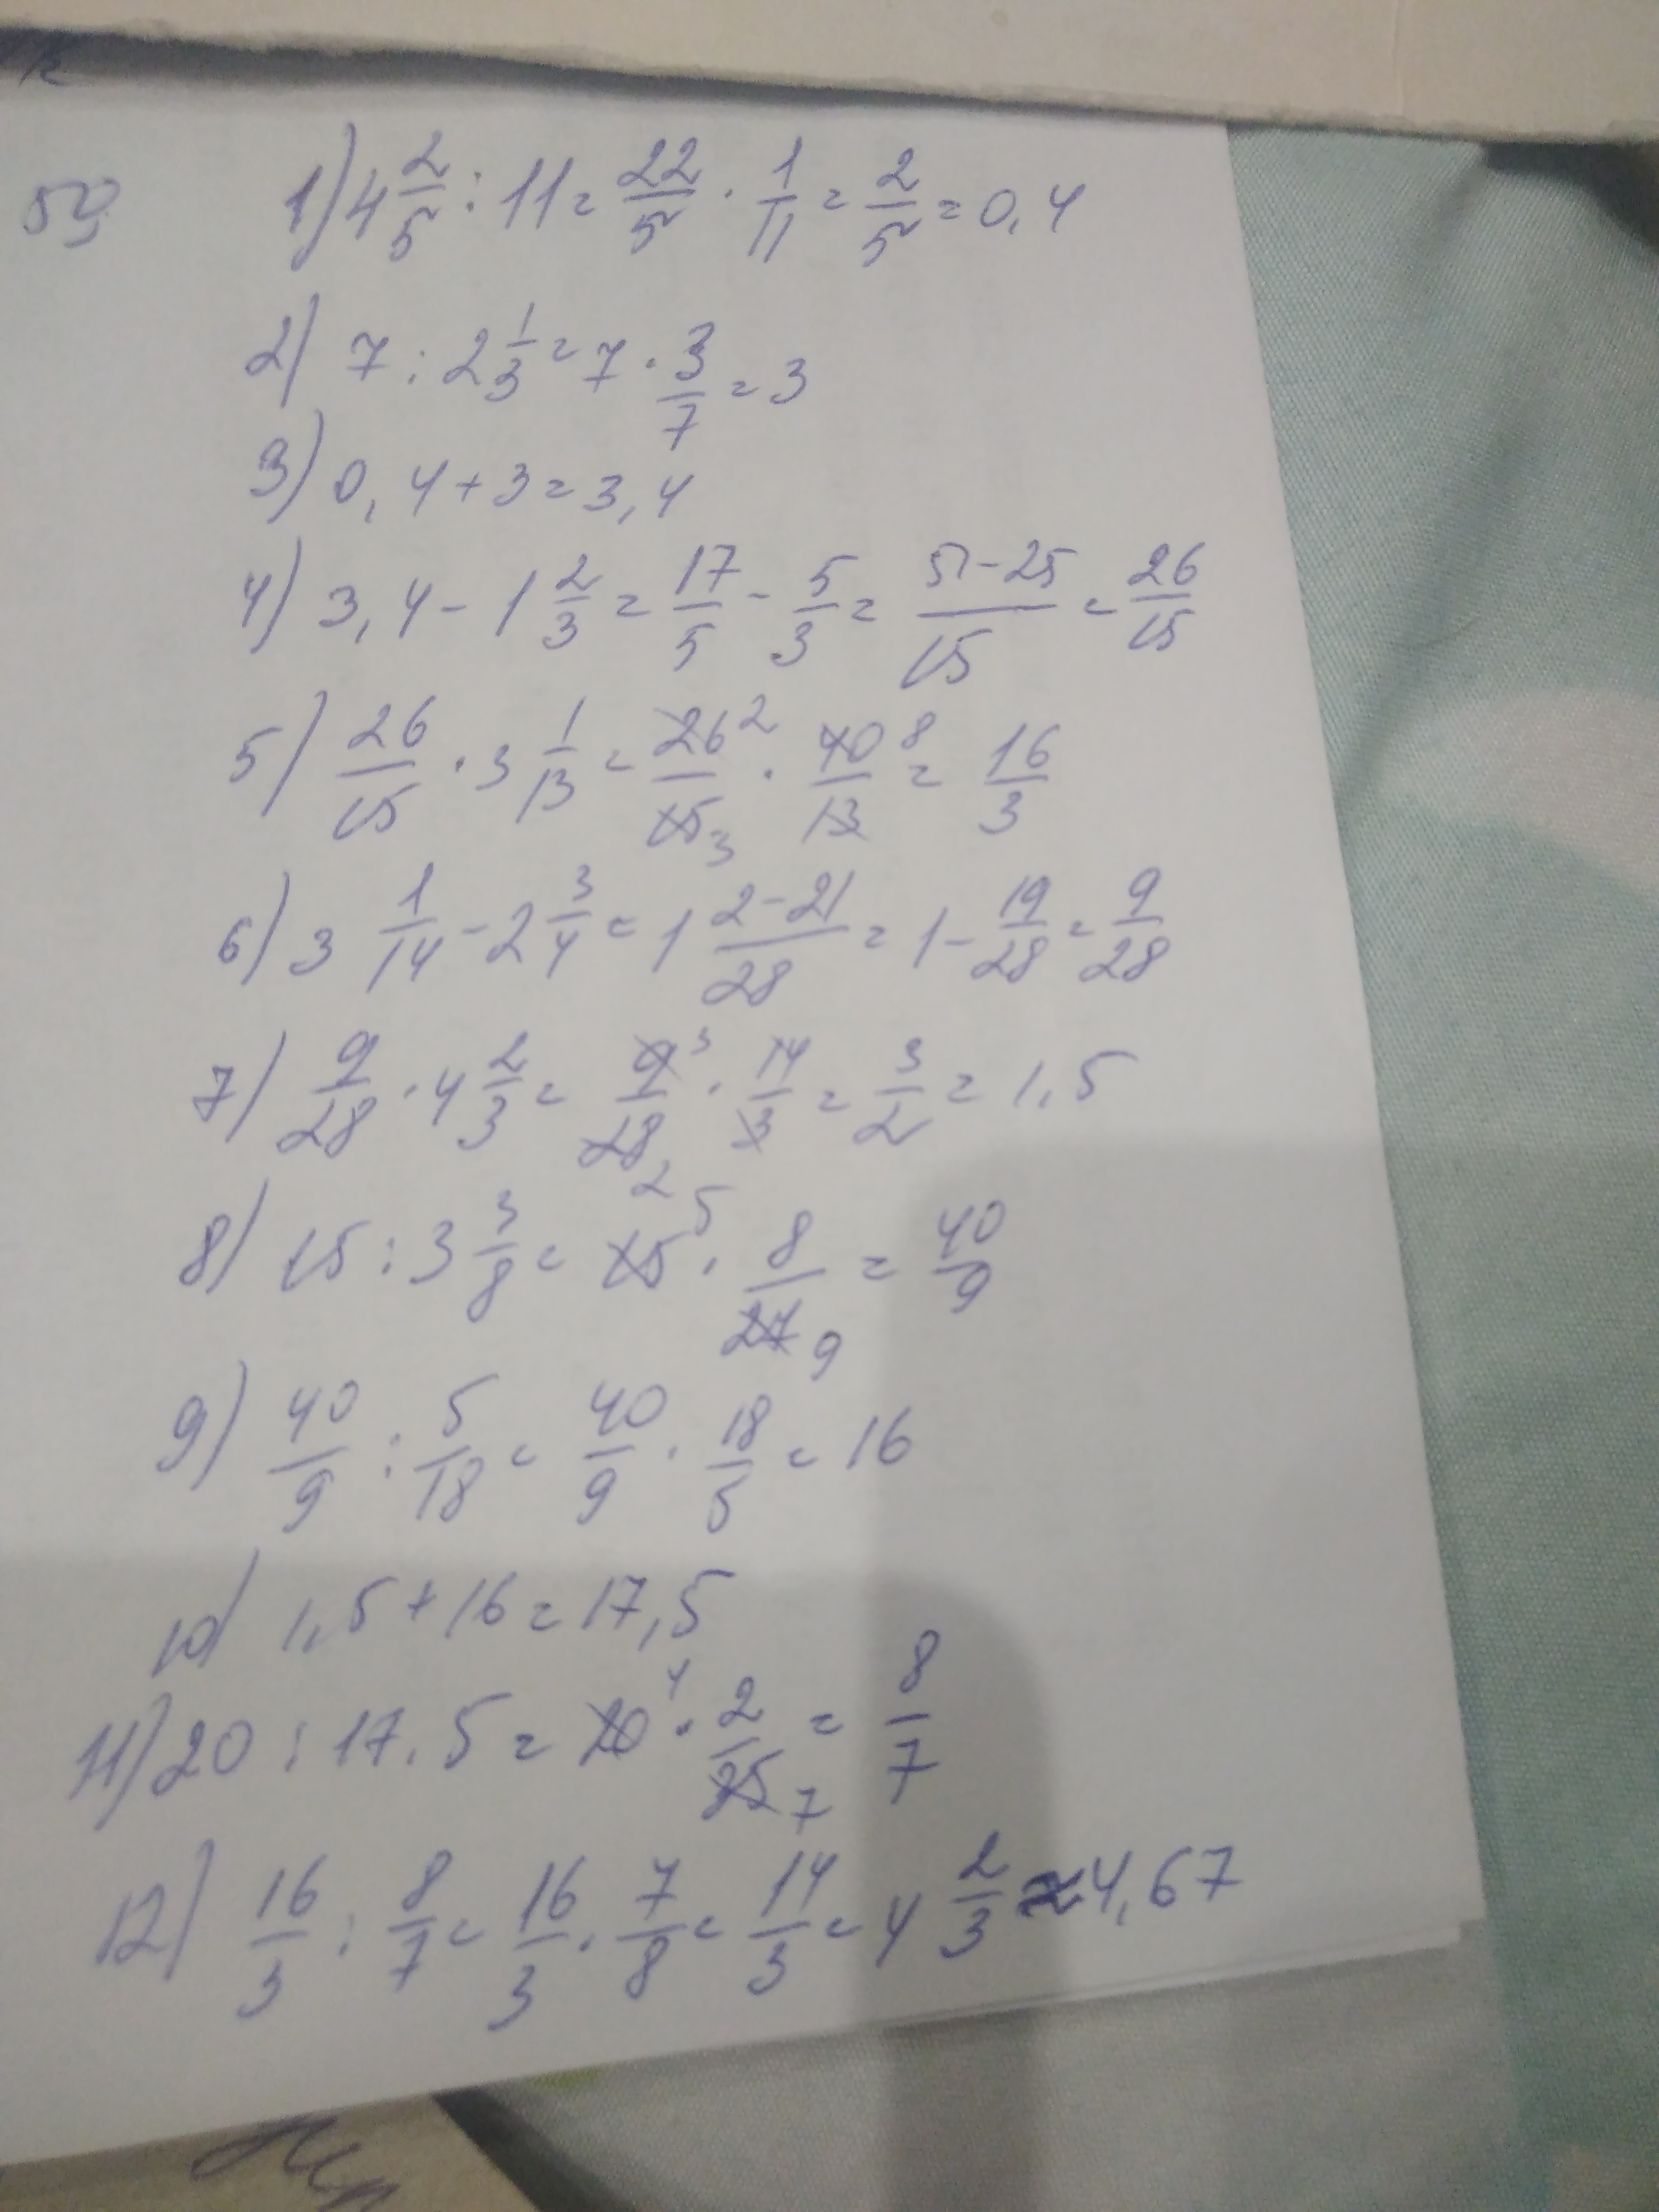 59 1) 4 2/5 : 11 = 22/5 · 1/11 = 2/5 = 0,4
2) 7 : 2 1/3 = 7 · 3/7 = 3
3) 0,4 + 3 = 3,4
4) 3,4 - 1 2/3 = 17/5 - 5/3 = 51-25/15 = 26/15
5) 26/15 · 3 1/13 = 26 2/15 3 · 40 8/13 = 16/3
6) 3 1/14 - 2 3/4 = 1 2-21/28 = 1 - 19/28 = 9/28
7) 9/28 · 4 2/3 = 9 3/28 2 · 14/3 = 3/2 = 1,5
8) 15 : 3 3/8 = 15 5 · 8/27 9 = 40/9
9) 40/9 : 5/18 = 40/9 · 18/5 = 16
10) 1,5 + 16 = 17,5
11) 20 : 17.5 = 20 4 · 2/35 7 = 8/7
12) 16/3 : 8/7 = 16/3 · 7/8 = 14/3 = 4 2/3 ≈ 4,67